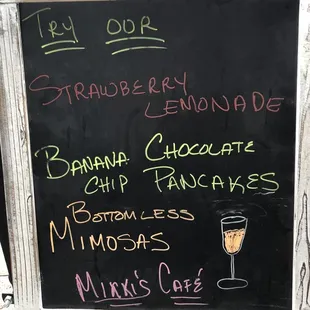 TRY OUR
STRAWBERRY
LEMONADE
BANANA CHOCOLATE
CHIP PANCAKES
BOTTOMLESS
MIMOSAS
MIKKI'S CAFÉ